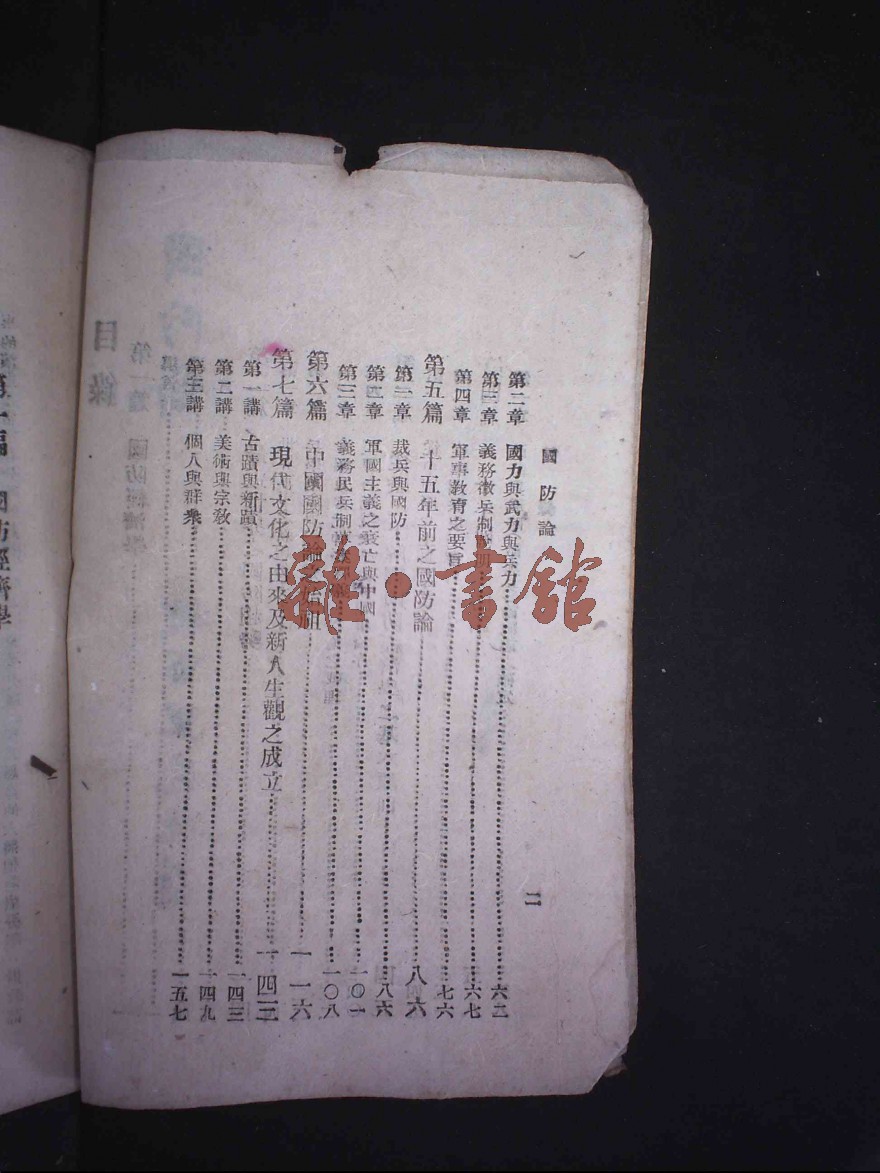 國防論
二
第二章 國力與武力與兵力 六二
第三章 義務徵兵制 六七
第四章 軍事教育之要旨 七六
第五篇 十五年前之國防論 八六
第一章 裁兵與國防 八六
第二章 軍國主義之衰亡與中國 一〇一
第三章 義務民兵制 一〇八
第六篇 中國國防論之始祖 一一六
第七篇 現代文化之由來及新人生觀之成立 一四三
第一講 古蹟與新蹟 一四三
第二講 美術與宗教 一四九
第三講 個人與群衆 一五七
目錄
國防經濟學
雜·書館